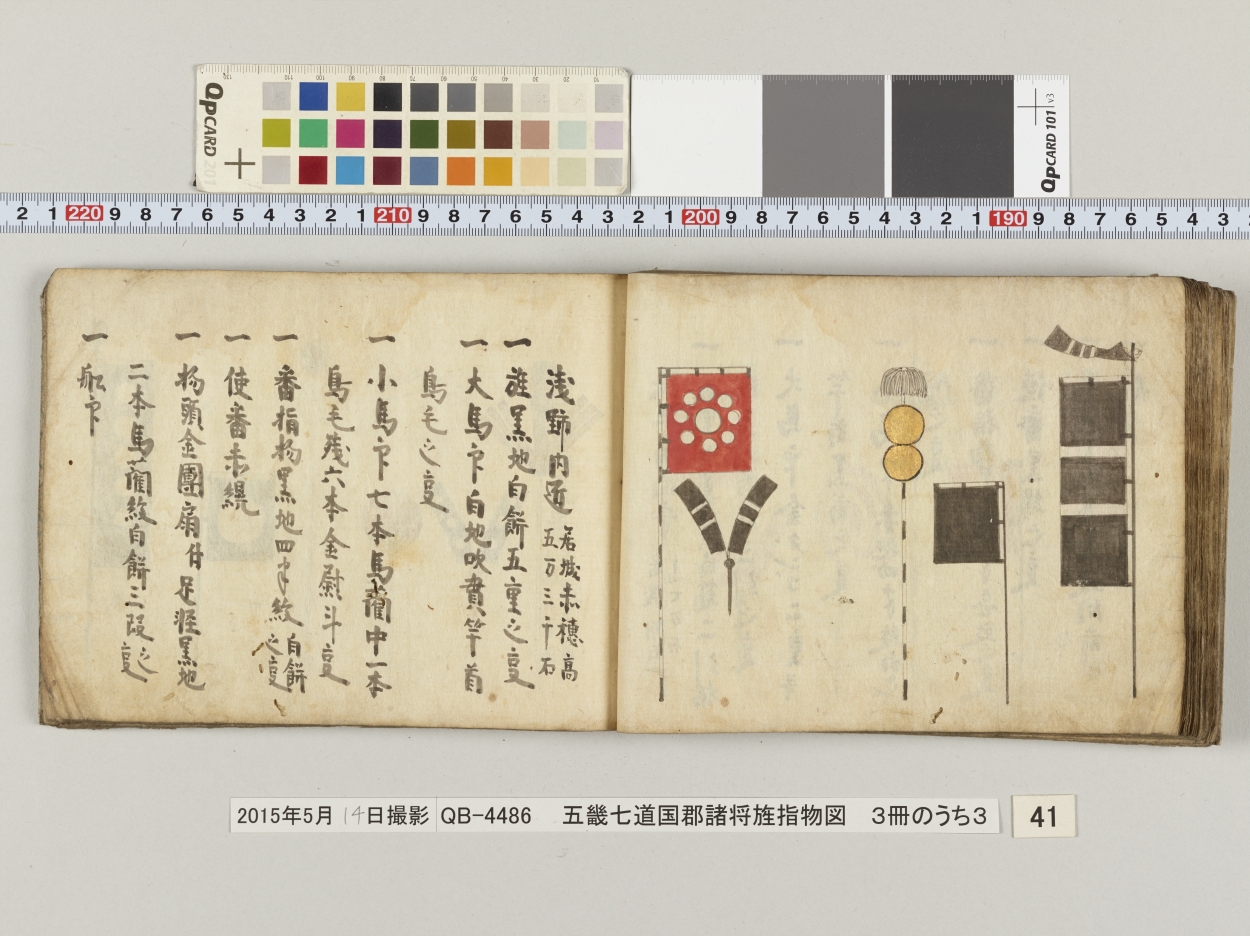 QPCARD 201
QPCARD 101 v3
2 1 220 9 8 7 6 5 4 3 2 1 210 9 8 7 6 5 4 3 2 1 200 9 8 7 6 5 4 3 2 1 190 9 8 7 6 5 4 3
浅野内近 居城赤穂高五万三千石
一 旌黒地白餅五重之㕝
一 大馬印白地吹貫竿首
鳥毛之㕝
一 小馬印七本馬藺中一本
鳥毛残六本金尉斗㕝
一 番指物黒地四半紋白餅之㕝
一 使番赤緄
一 物頭金團扇 足軽黒地
二本馬藺紋白餅三段之㕝
一 船印
2015年5月14日撮影 QB-4486 五畿七道国郡諸将旌指物図 3冊のうち3
41